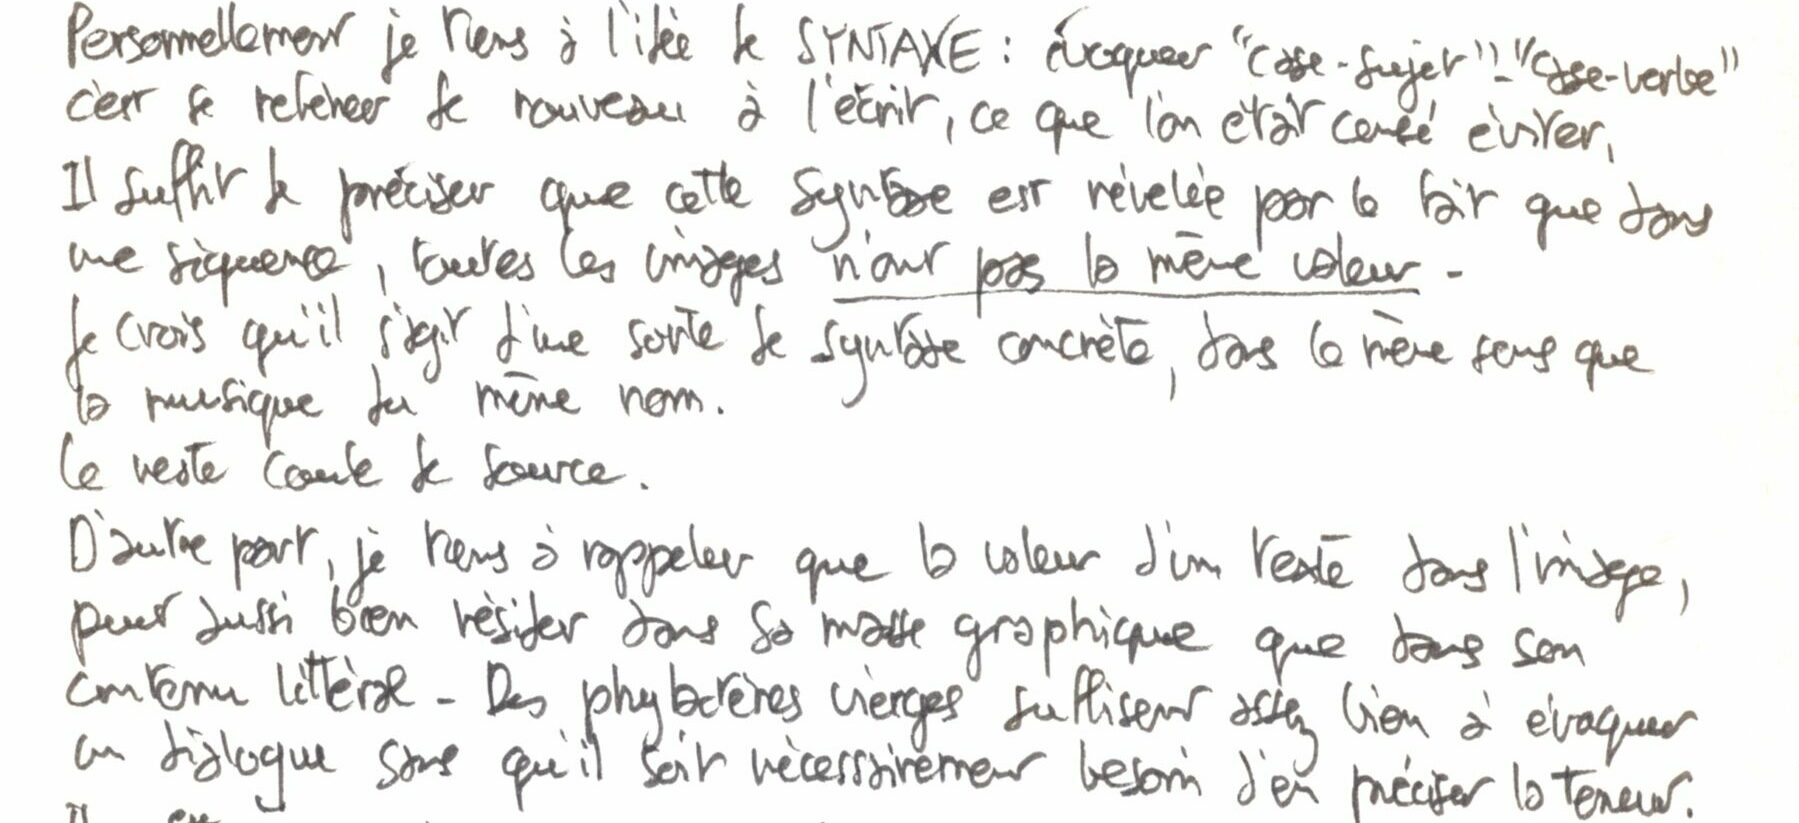 Personnellement je tiens à l'idée de SYNTAXE : évoquer "case-sujet"-"case-verbe"
c'est se référer de nouveau à l'écrit, ce que l'on était censé éviter,
Il suffit de préciser que cette syntaxe est révélée par le fait que dans
une séquence, toutes les images n'ont pas la même valeur -
Je crois qu'il s'agit d'une sorte de syntaxe concrète, dans le même sens que
la musique du même nom.
Le reste coule de source.
D'autre part, je tiens à rappeler que la valeur d'un texte dans l'image,
peut aussi bien résider dans sa masse graphique que dans son
contenu littéral - Des phylactères vierges suffisent assez bien à évoquer
un dialogue sans qu'il soit nécessairement besoin d'en préciser la teneur.
Il